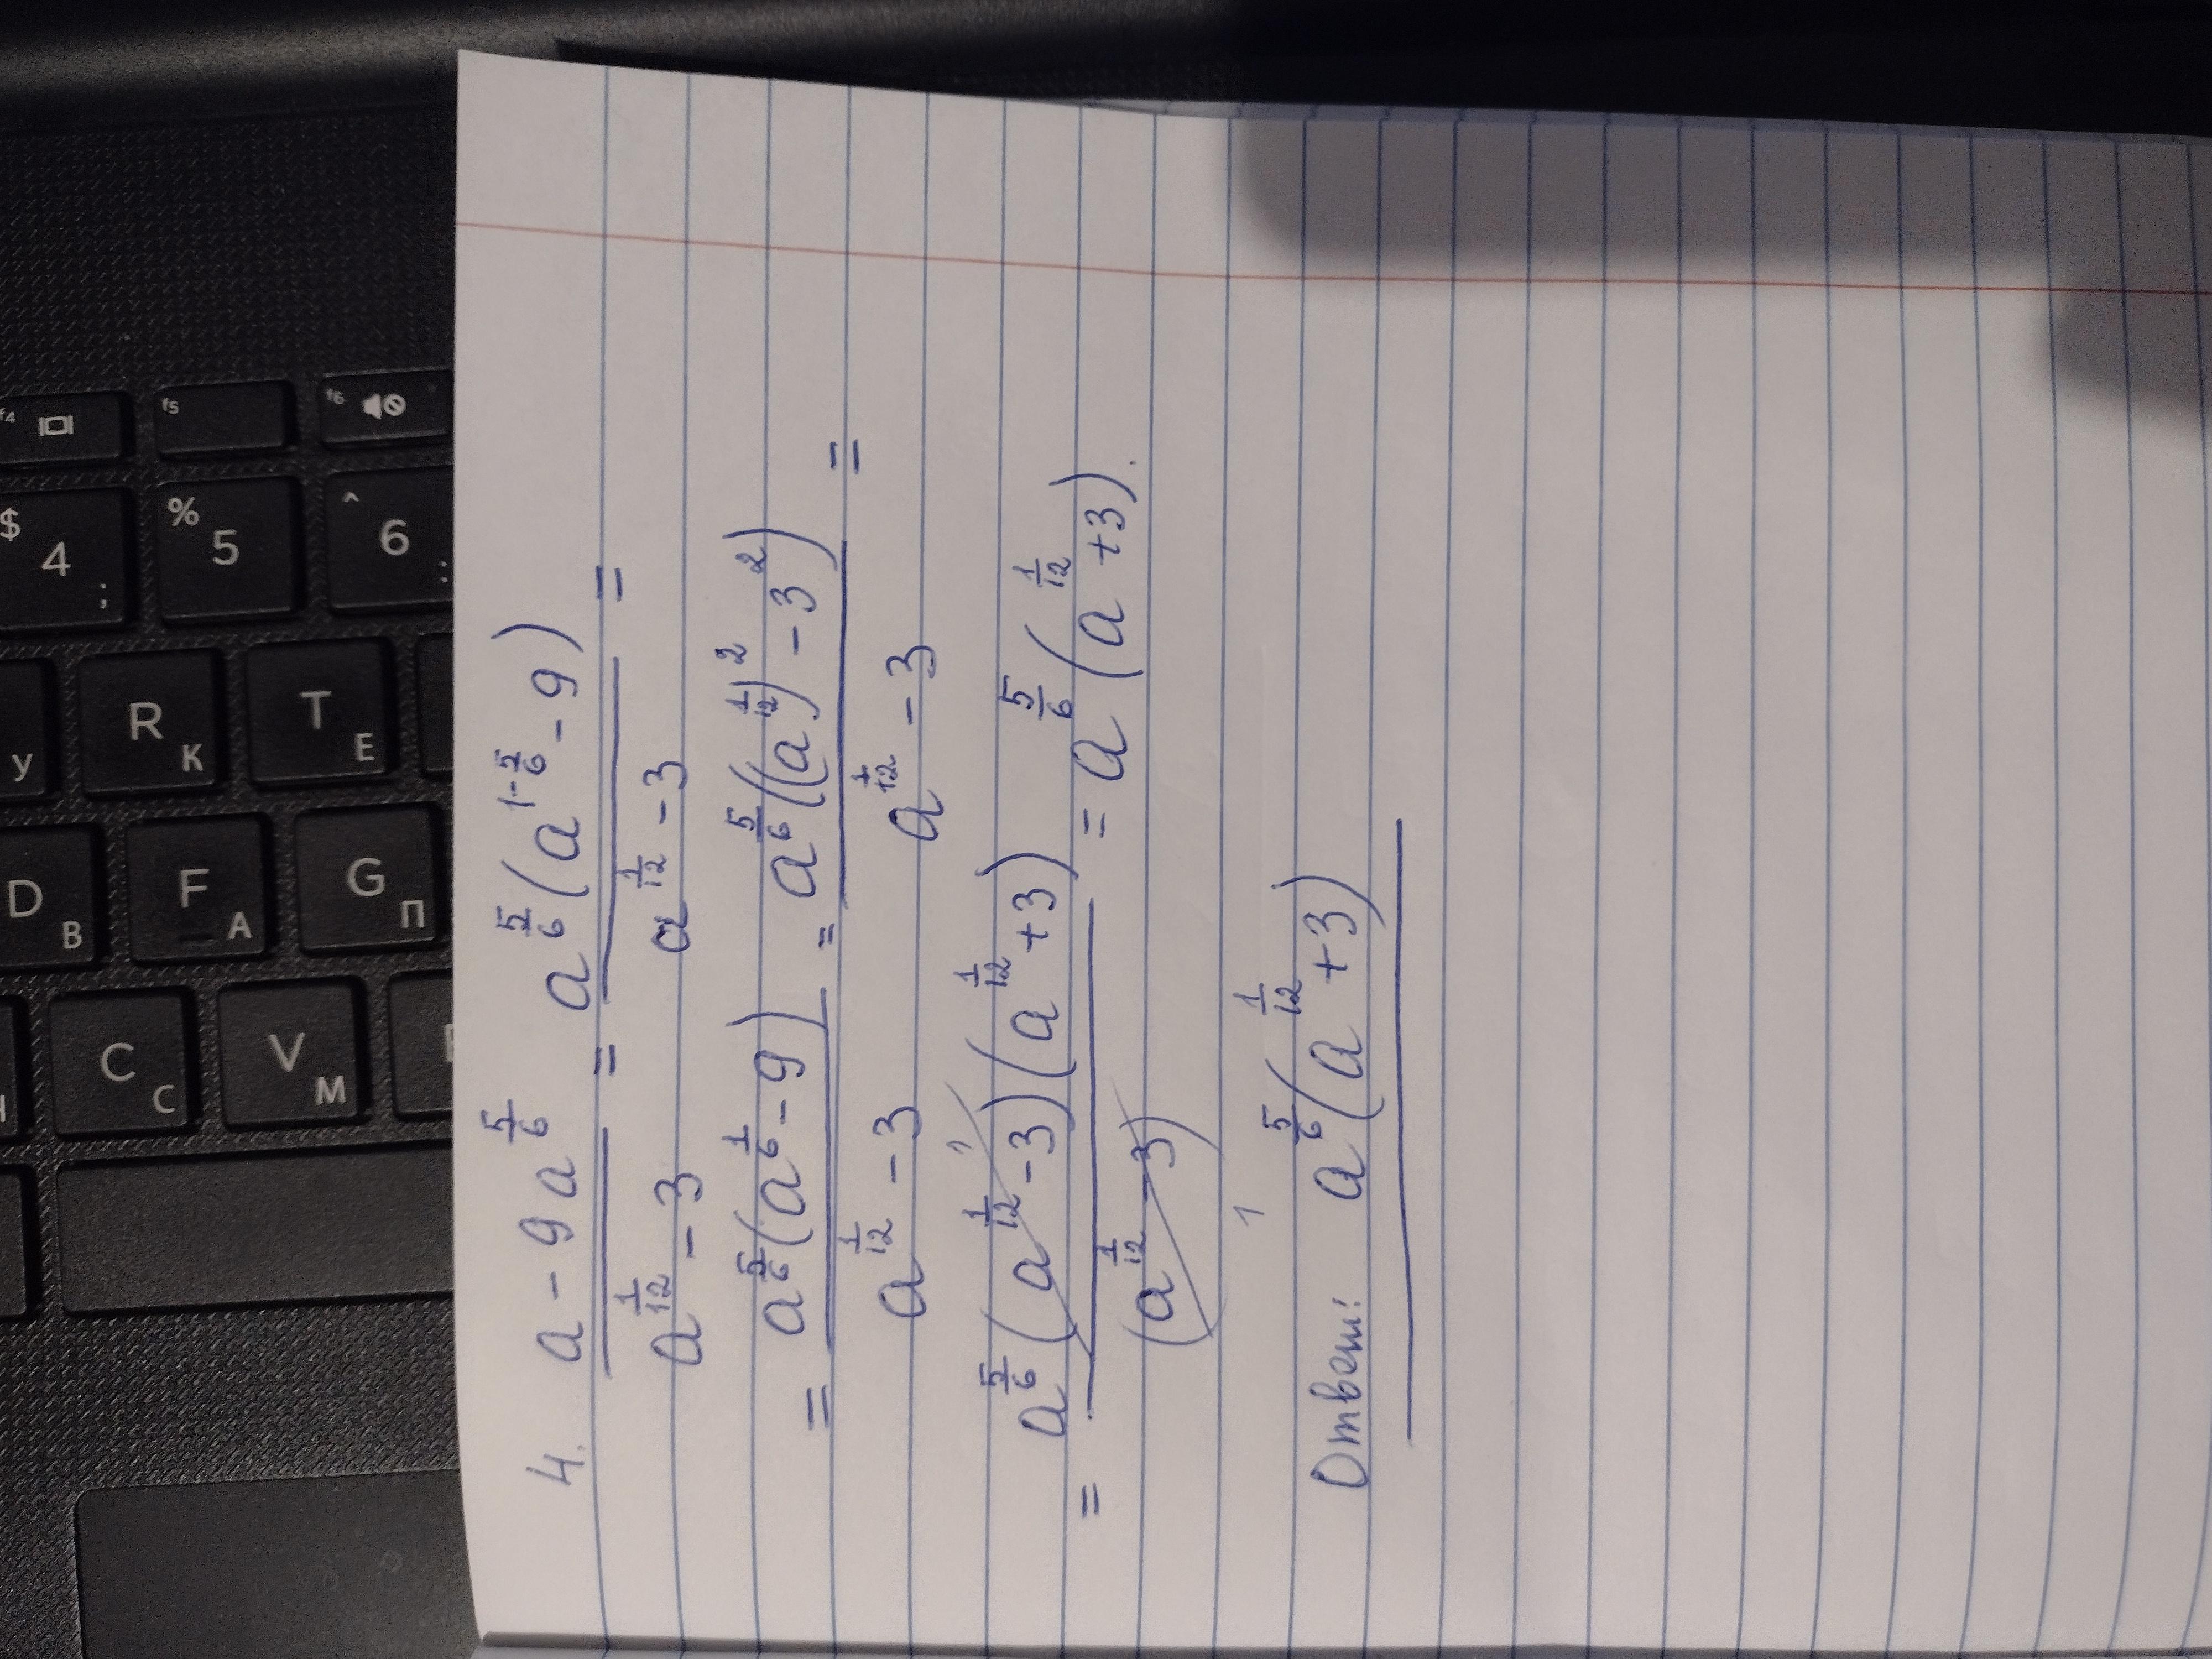 4. \frac{a - 9a^{\frac{5}{6}}}{a^{\frac{1}{12}} - 3} = \frac{a^{\frac{5}{6}}(a^{1-\frac{5}{6}} - 9)}{a^{\frac{1}{12}} - 3} =
= \frac{a^{\frac{5}{6}}(a^{\frac{1}{6}} - 9)}{a^{\frac{1}{12}} - 3} = \frac{a^{\frac{5}{6}}((a^{\frac{1}{12}})^2 - 3^2)}{a^{\frac{1}{12}} - 3} =
= \frac{a^{\frac{5}{6}}(a^{\frac{1}{12}} - 3)^1(a^{\frac{1}{12}} + 3)}{(a^{\frac{1}{12}} - 3)_1} = a^{\frac{5}{6}}(a^{\frac{1}{12}} + 3).
Ответ: a^{\frac{5}{6}}(a^{\frac{1}{12}} + 3)
f4
f5
f6
$ 4 ;
% 5
^ 6 :
У
R К
T Е
D В
F А
G П
C С
V М